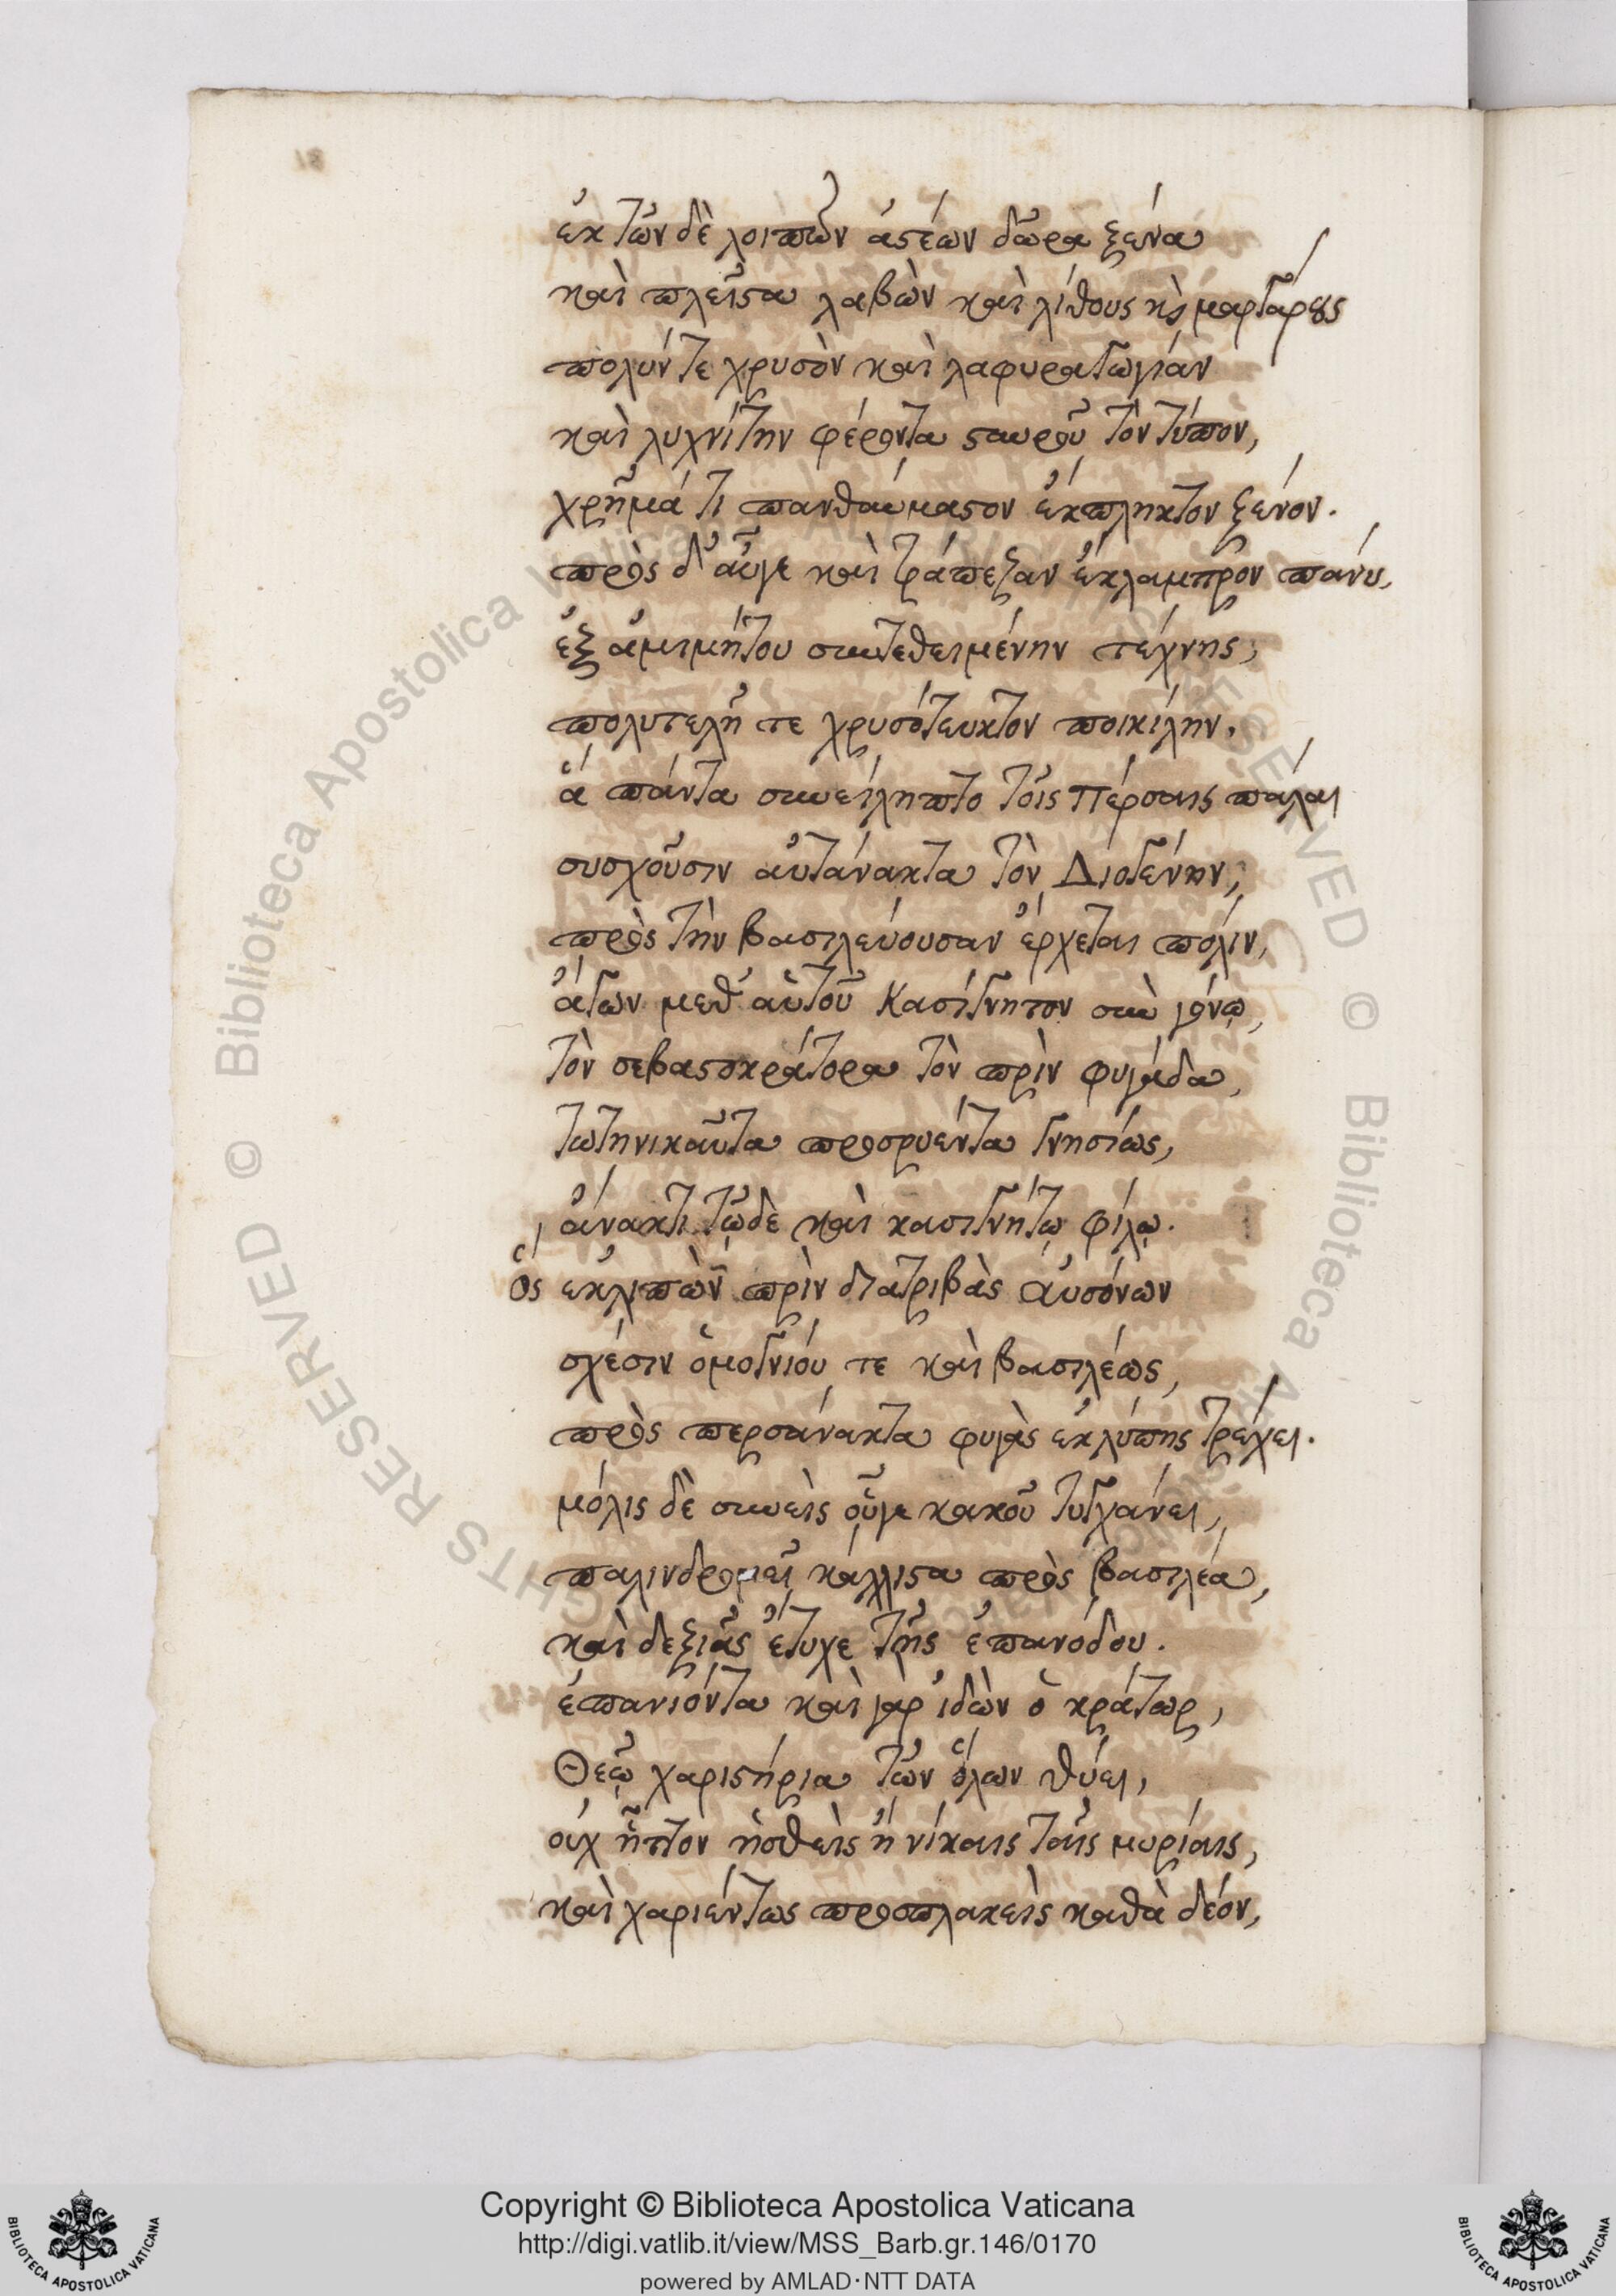 ἐκ τῶν δὲ λοιπῶν ἀστέων δῶρα ξένα
καὶ πλεῖστα λαβὼν καὶ λίθους κὶ μαργάρους
πολύν τε χρυσὸν καὶ λαφυραγωγίαν
καὶ λυχνίτην φέροντα σταυροῦ τὸν τύπον,
χρῆμά τι πανθαύμαστον ἔκπληκτον ξένον.
πρὸς δ' αὖγε καὶ τράπεζαν ἔκλαμπρον πάνυ,
ἐξ ἀμιμήτου συντεθειμένην τέχνης,
πολυτελῆ τε χρυσότευκτον ποικίλην.
ἃ πάντα συνείληπτο τοῖς Πέρσαις πάλαι
συσχοῦσιν αὐτάνακτα τὸν Διογένην,
πρὸς τὴν βασιλεύουσαν ἔρχεται πόλιν,
ἄγων μεθ' αὑτοῦ κασίγνητον σὺν γόνῳ,
τὸν σεβαστοκράτορα τὸν πρὶν φυγάδα,
τωτηνικαῦτα προσρυέντα γνησίως,
ἄνακτι τῷδε καὶ κασιγνήτῳ φίλῳ.
ὃς ἐκλιπὼν πρὶν διατριβὰς αὐσόνων
σχέσιν ὁμογνίου τε καὶ βασιλέως,
πρὸς περσάνακτα φυγὰς ἐκλύπης τρέχει.
μόλις δὲ συνεὶς οὗγε κακοῦ τυγχάνει,
παλινδρομεῖ κάλλιστα πρὸς βασιλέα,
καὶ δεξιᾶς ἔτυχε τῆς ἐπανόδου.
ἐπανιόντα καὶ γὰρ ἰδὼν ὁ κράτωρ,
Θεῷ χαριστήρια τῶν ὅλων θύει,
οὐχ ἧττον ἡσθεὶς ἢ νίκαις ταῖς μυρίαις,
καὶ χαριέντως προσπλακεὶς καθὰ δέον,
Copyright © Biblioteca Apostolica Vaticana
http://digi.vatlib.it/view/MSS_Barb.gr.146/0170
powered by AMLAD·NTT DATA